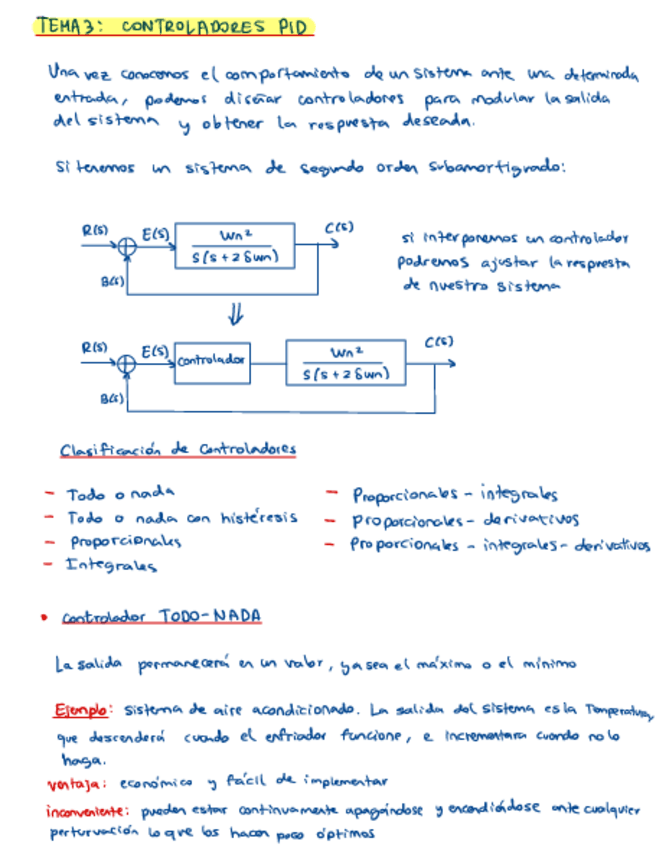 TEMA 3: CONTROLADORES PID
Una vez conocemos el comportamiento de un sistema ante una determinada
entrada, podemos diseñar controladores para modular la salida
del sistema y obtener la respuesta deseada.
Si tenemos un sistema de segundo orden subamortiguado:
R(s) E(s) Wn² C(s)
S(s + 2δwn)
B(s)
si interponemos un controlador
podremos ajustar la respuesta
de nuestro sistema
⇓
R(s) E(s) controlador Wn² C(s)
S(s + 2δwn)
B(s)
Clasificación de controladores
- Todo o nada
- Todo o nada con histéresis
- Proporcionales
- Integrales
- Proporcionales - integrales
- Proporcionales - derivativos
- Proporcionales - integrales - derivativos
• controlador TODO-NADA
La salida permanecerá en un valor, ya sea el máximo o el mínimo
Ejemplo: sistema de aire acondicionado. La salida del sistema es la Temperatura,
que descenderá cuando el enfriador funcione, e incrementara cuando no lo
haga.
ventaja: económico y fácil de implementar
inconveniente: pueden estar continuamente apagándose y encendiéndose ante cualquier
perturvación lo que los hacen poco óptimos